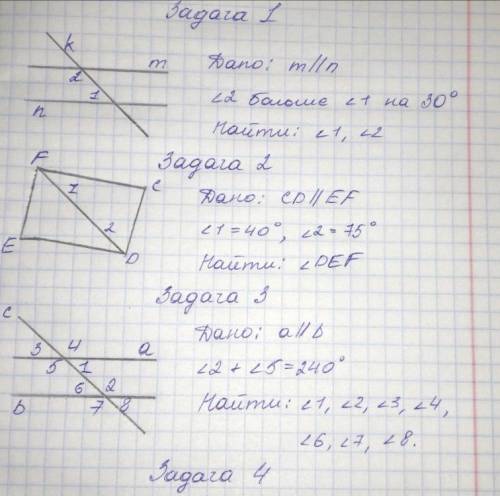 Задача 1
k
m
2
1
n
Дано: m//n
∠2 больше ∠1 на 30°
Найти: ∠1, ∠2
Задача 2
F
C
1
2
E
D
Дано: CD//EF
∠1=40°, ∠2=75°
Найти: ∠DEF
Задача 3
c
3 4 a
5 1
6 2
b 7 8
Дано: a//b
∠2+∠5=240°
Найти: ∠1, ∠2, ∠3, ∠4,
∠6, ∠7, ∠8.
Задача 4